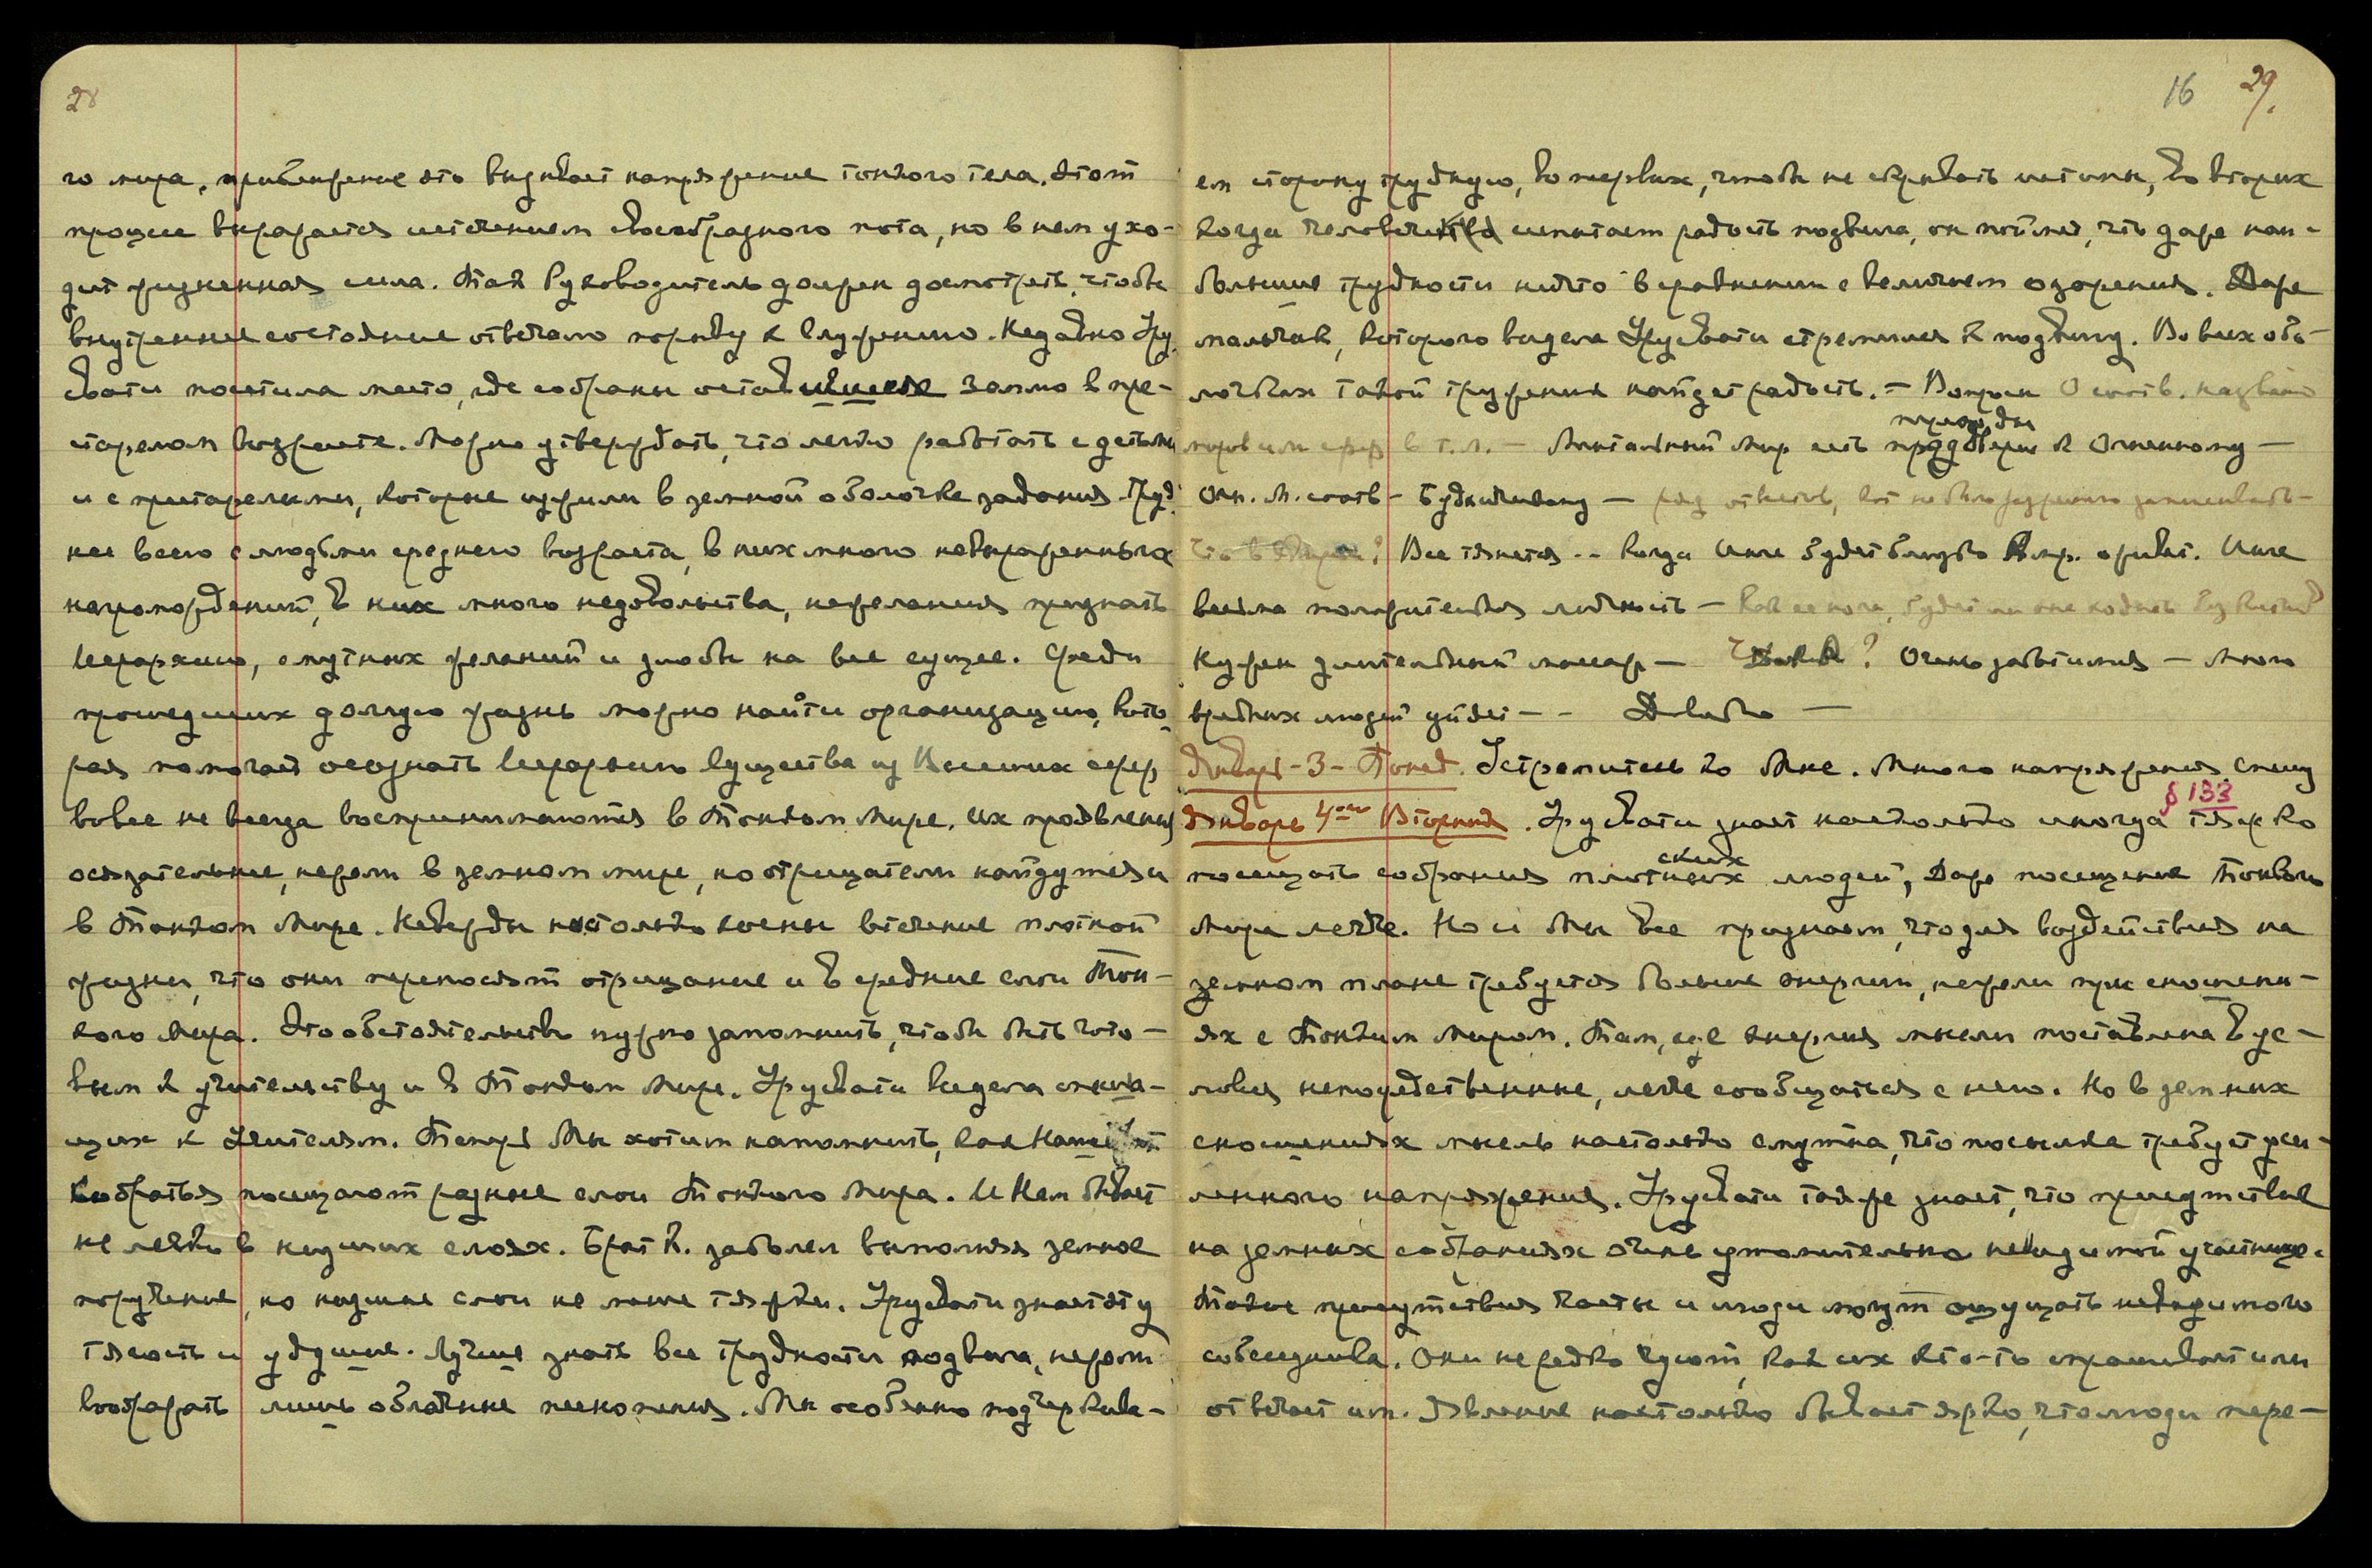 28
го мира, приближение это вызывает напряжение тонкого тела. Этот
процесс выражается истечением своеобразного пота, но в нем ухо-
дит жизненная сила. Так Руководитель должен досмотреть, чтобы
внутреннее состояние отвечало порыву к служению. Недавно Уру-
свати посетила место, где собраны оставившие землю в пре-
старелом возрасте. Можно утверждать, что легко работать с детьми
и с престарелыми, которые изжили в земной оболочке задания. Труд-
нее всего с людьми среднего возраста, в них много невыраженных
нагромождений, в них много недовольства, нежелания признать
Иерархию, смутных желаний и злобы на все сущее. Среди
прошедших долгую жизнь можно найти организацию, кото-
рая помогает осознать Иерархию. Существа из Высших сфер
вовсе не всегда воспринимаются в Тонком Мире. Их проявления
осязательнее, нежели в земном мире, но отрицатели найдутся и
в Тонком Мире. Невежды настолько косны втечение плотной
жизни, что они переносят отрицание и в средние слои Тон-
кого Мира. Это обстоятельство нужно запомнить, чтобы быть гото-
вым к учительству и в Тонком Мире. Урусвати видела
к Учителям. Теперь Мы хотим напомнить, как Наши
Собратья посещают разные слои Тонкого Мира. И Нам бывает
не легко в низших слоях. Брат К. заболел выполняя земное
поручение, но низшие слои не менее тяжки. Урусвати знает эту
тягость и удушие. Лучше знать все трудности подвига, нежели
вообразить лишь облачные песнопения. Мы особенно подчеркива-
16 29.
ем сторону трудную, во первых, чтобы не скрывать истины, во вторых
когда человек испытает радость подвига, он поймет, что даже наи-
большие трудности ничто в сравнении с величием озарения. Даже
мальчик, которого видела Урусвати стремился к подвигу. Во всех обо-
лочках такой труженик найдет радость. — Вопрос О соотв. названий
миров или сфер в Т.М. — Ментальный мир есть преддверие к Огненному —
преддв.
Огн. М. соотв — Буддхическому — ряд ответов, кот не было разрешено записывать —
Все тянется .. когда Инге будет близко Амр. оживет. Инге
весьма положительная личность — Как ее нога, будет ли она ходить
Нужен длительный массаж — ? Очень заботимся — Много
вредных людей уйдет — — Довольно —
Январь - 3 - Понед. Устремитесь ко Мне. Много напряжения. Спешу
§ 133
Январь 4ого Вторник. Урусвати знает насколько иногда тяжко
посещать собрания плотских людей, Даже посещение Тонкого
Мира легче. Но и Мы все признаем, что для воздействия на
земном плане требуется больше энергии, нежели при сношени-
ях с Тонким Миром. Там, где энергия мысли поставлена в ус-
ловия непосредственные, легче сообщаться с нею. Но в земных
сношениях мысль настолько смутна, что посылка требует уси-
ленного напряжения. Урусвати также знает, что присутствие
на земных собраниях очень утомительно невидимой участнице.
Такие присутствия часты и люди могут ощущать невидимого
собеседника. Они не редко чуют, как их кто-то спрашивает или
отвечает им. Явление настолько бывает ярко, что люди пере-